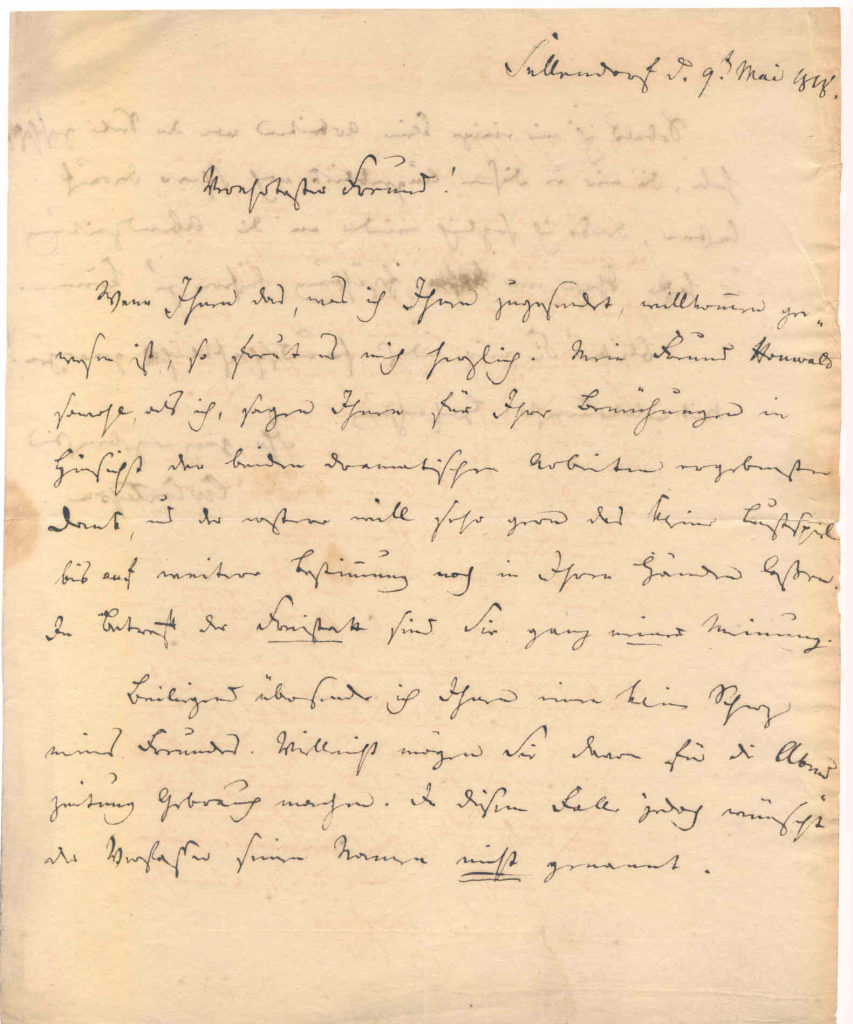 Sellendorf d. 9t Mai 1818.
Verehrtester Freund!
Wenn Ihnen das, was ich Ihnen zugesendet, willkommen ge-
wesen ist, so freut es mich herzlich. Mein Freund Houwald
sowohl, als ich, sagen Ihnen für Ihre Bemühungen in
Hinsicht der beiden dramatischen Arbeiten ergebensten
Dank, und der erstere will sehr gern das kleine Lustspiel
bis auf weitere Bestimmung noch in Ihren Händen lassen.
In Betreff der Freistatt sind Sie ganz meiner Meinung.
Beiliegend übersende ich Ihnen einen kleinen Scherz
meines Freundes. Vielleicht mögen Sie davon für die Abend
zeitung Gebrauch machen. In diesem Falle jedoch wünscht
der Verfasser seinen Namen nicht genannt.